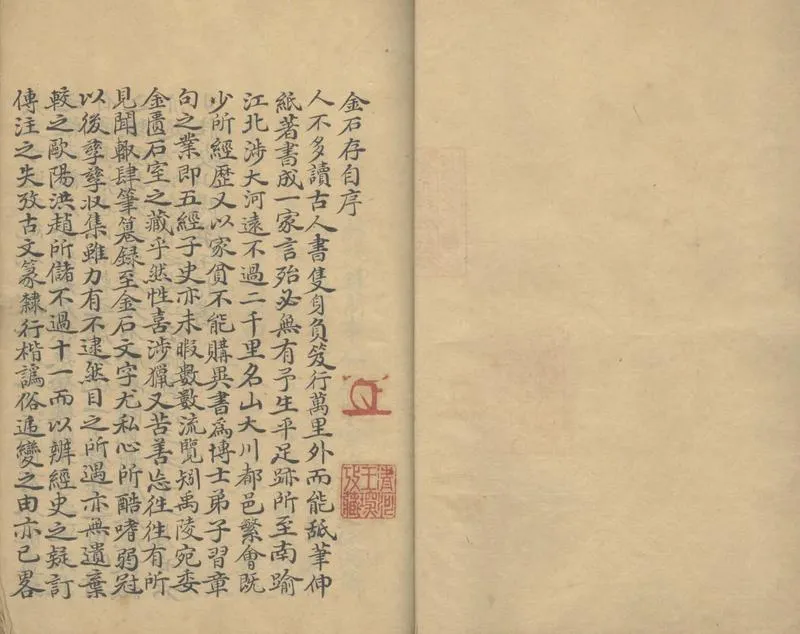 金石存自序
人不多讀古人書隻身負笈行萬里外而能舐筆伸
紙著書成一家言殆必無有予生平足跡所至南踰
江北涉大河遠不過二千里名山大川都邑繁會既
少所經歷又以家貧不能購異書為博士弟子習章
句之業即五經子史亦未暇數數流覽矧禹陵宛委
金匱石室之藏乎然性喜涉獵又苦善忘徃徃有所
見聞輙肆筆纂録至金石文字尤私心所酷嗜弱冠
以後孳孳収集雖力有不逮然目之所遇亦無遺棄
較之歐陽洪趙所儲不過十一而以辨經史之疑訂
傳注之失攷古文篆隸行楷譌俗遞變之由亦已畧